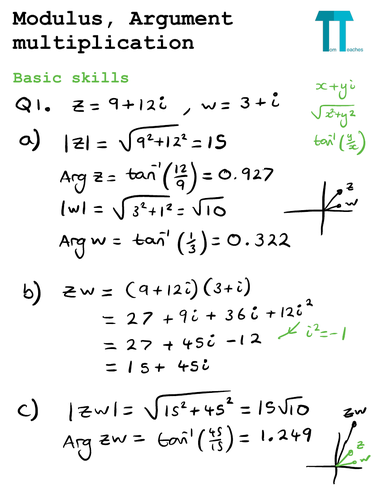 Modulus, Argument
multiplication
TT
Tom Teaches
Basic skills
x+yi
Q1. z = 9+12i , w = 3+i
√x²+y²
a) |z| = √9²+12² = 15
tan⁻¹(y/x)
Arg z = tan⁻¹(12/9) = 0.927
|w| = √3²+1² = √10
z
w
Arg w = tan⁻¹(1/3) = 0.322
b) zw = (9+12i)(3+i)
= 27 + 9i + 36i + 12i²
= 27 + 45i - 12
i² = -1
= 15 + 45i
c) |zw| = √15²+45² = 15√10
zw
Arg zw = tan⁻¹(45/15) = 1.249
z
w